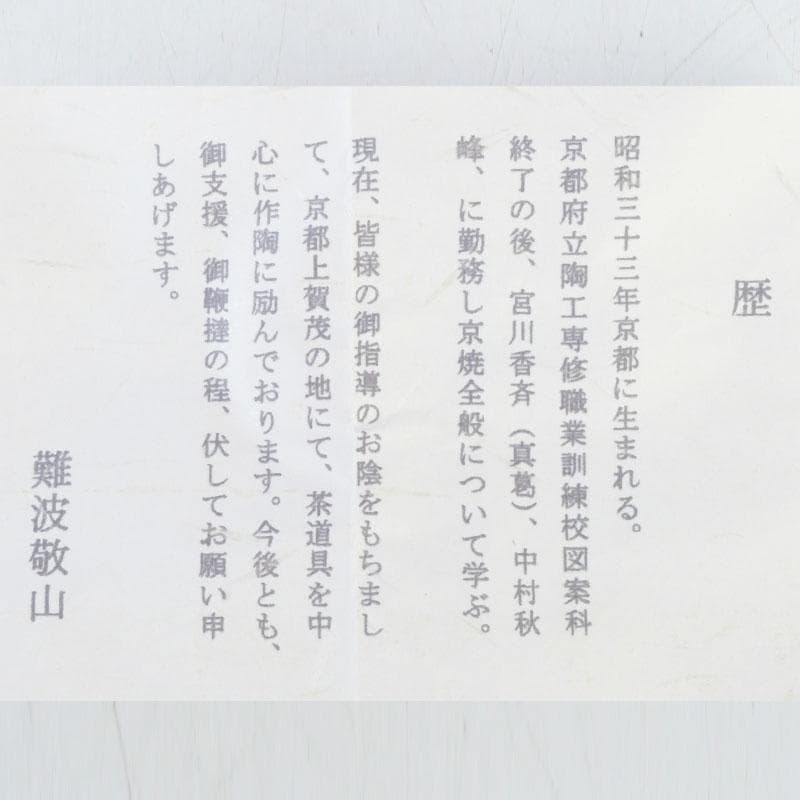 歴
昭和三十三年京都に生まれる。
京都府立陶工専修職業訓練校図案科
終了の後、宮川香斉（真葛）、中村秋
峰、に勤務し京焼全般について学ぶ。
現在、皆様の御指導のお陰をもちまし
て、京都上賀茂の地にて、茶道具を中
心に作陶に励んでおります。今後とも、
御支援、御鞭撻の程、伏してお願い申
しあげます。
難波敬山